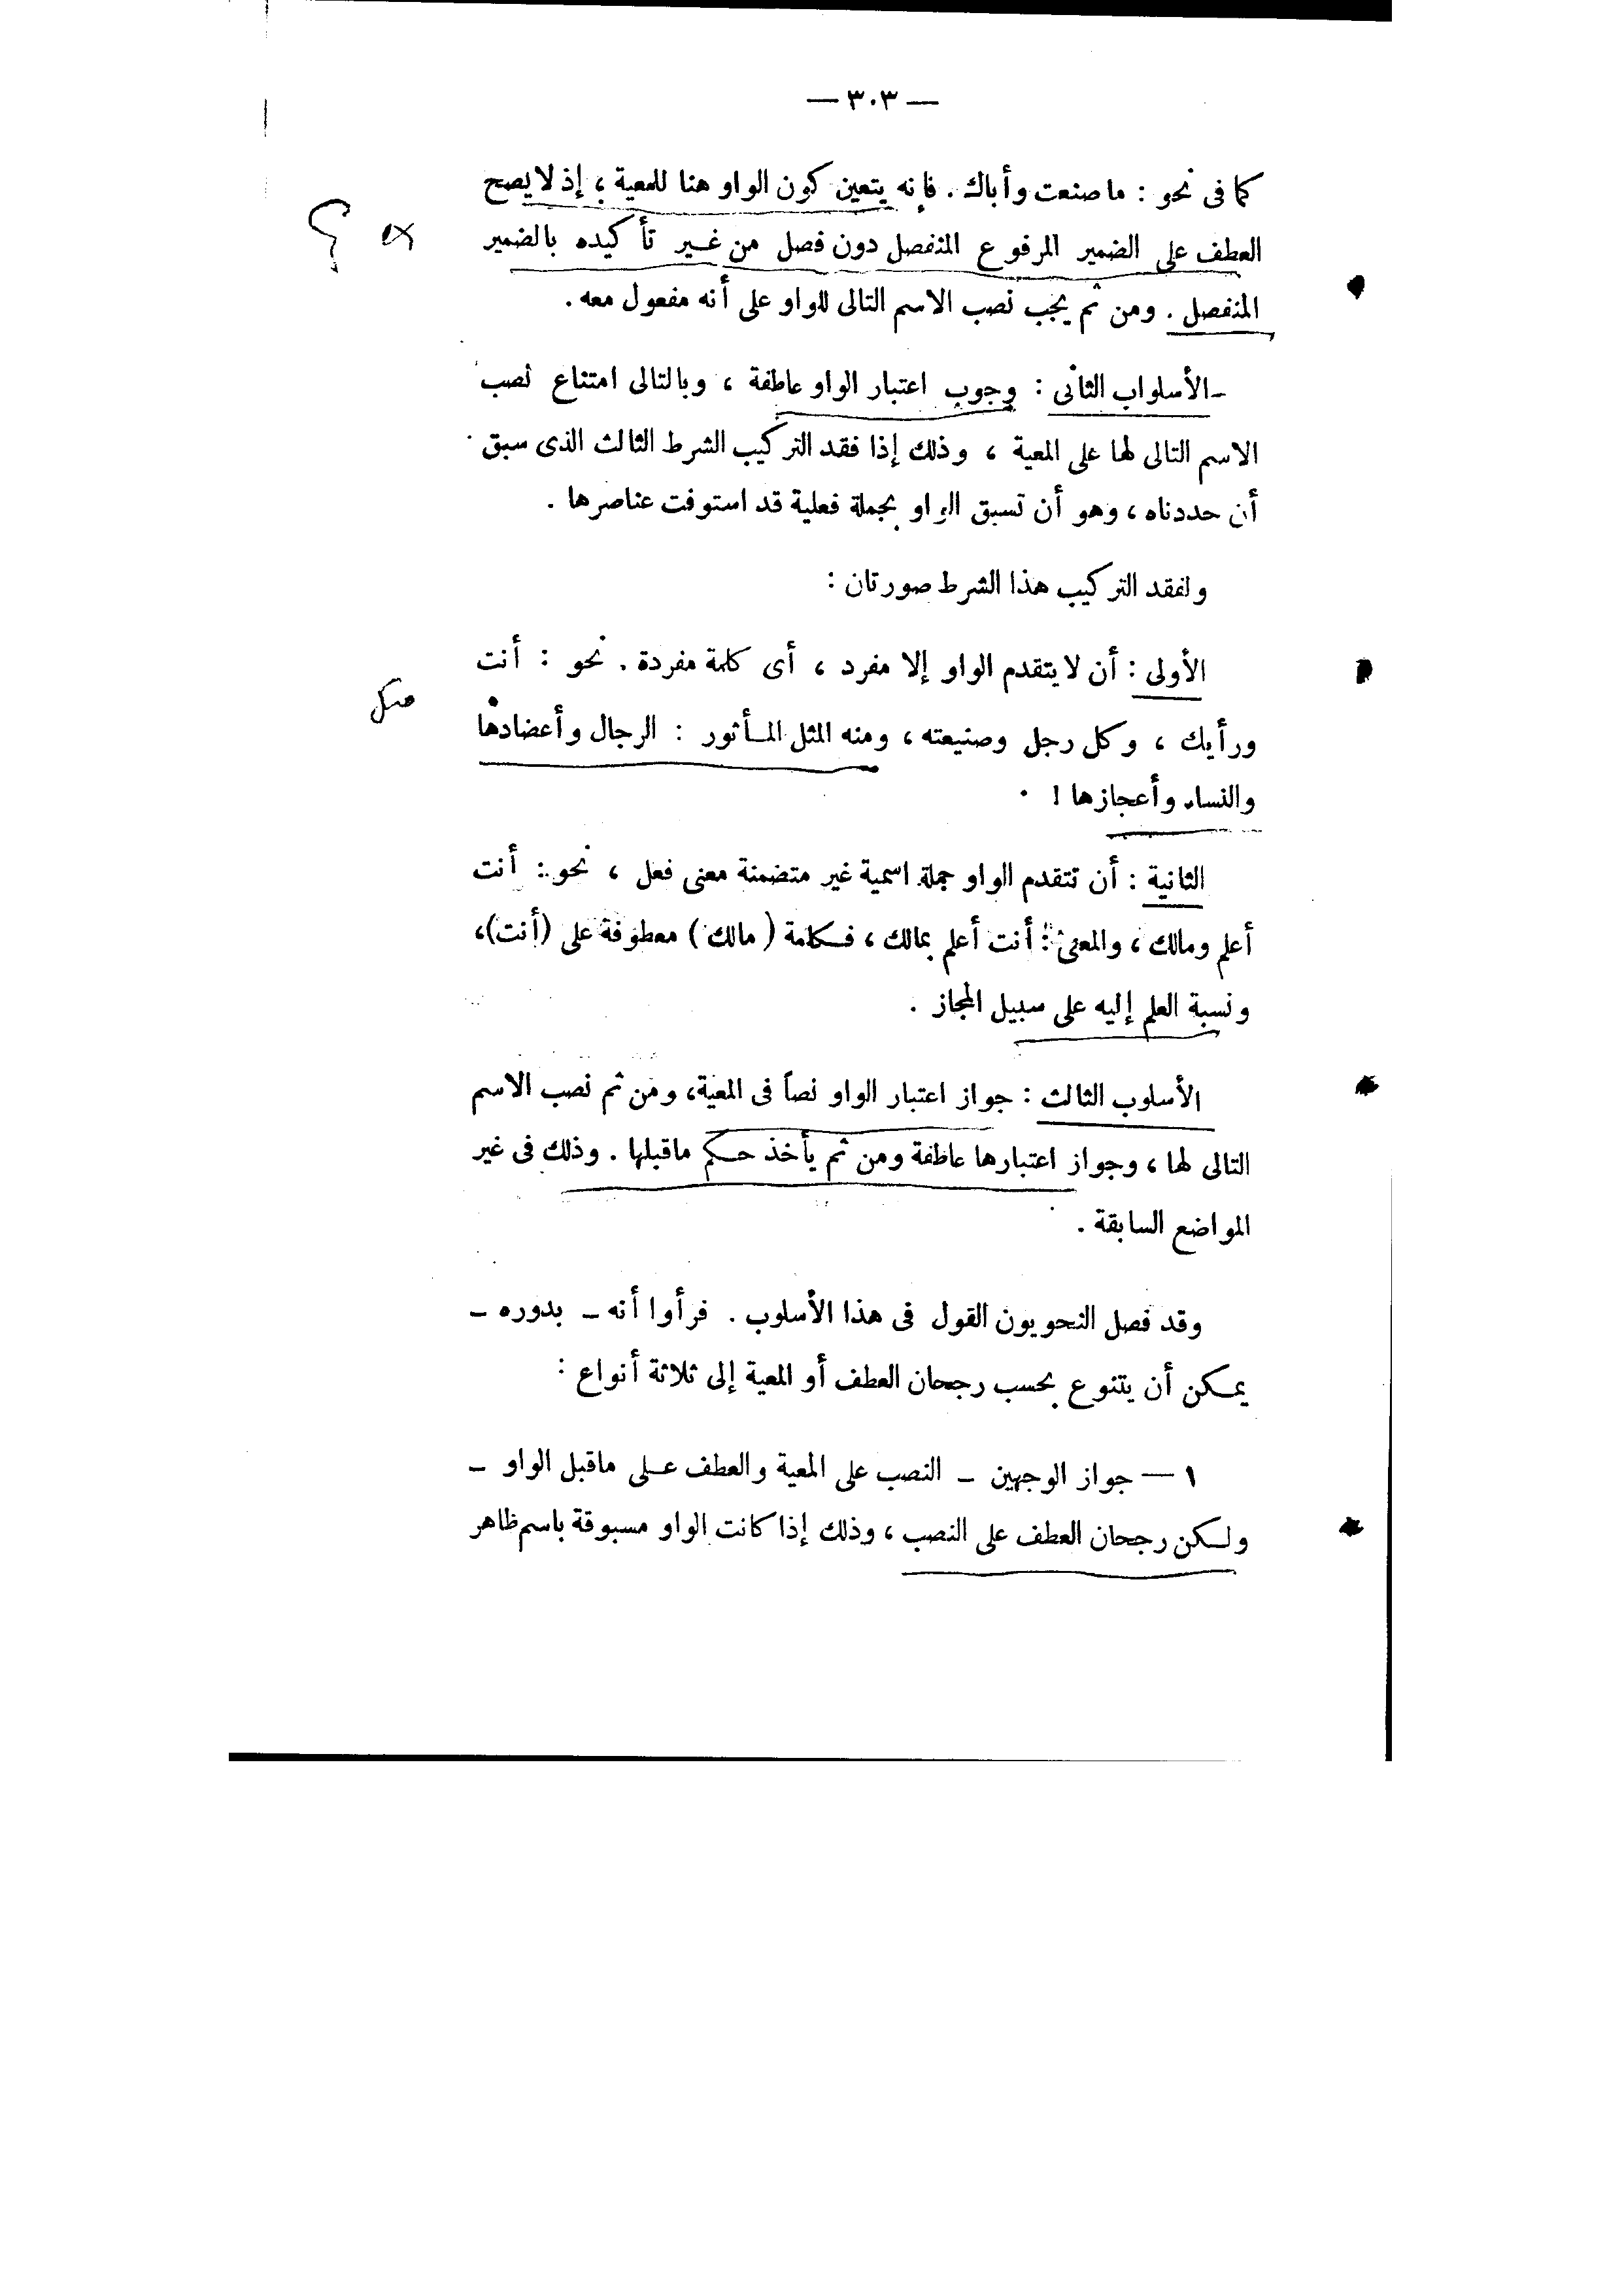 — ٣٠٣ —
كما فى نحو : ما صنعت وأباك . فإنه يتعين كون الواو هنا للمعية ؛ إذ لا يصح
العطف على الضمير المرفوع المنفصل دون فصل من غير تأكيده بالضمير
المنفصل . ومن ثم يجب نصب الاسم التالى للواو على أنه مفعول معه .
ـ الأسلواب الثانى : وجوب اعتبار الواو عاطفة ، وبالتالى امتناع نصب
الاسم التالى لها على المعية ، وذلك إذا فقد التركيب الشرط الثالث الذى سبق
أن حددناه ، وهو أن تسبق الواو بجملة فعلية قد استوفت عناصرها .
ولفقد التركيب هذا الشرط صورتان :
الأولى : أن لا يتقدم الواو إلا مفرد ، أى كلمة مفردة . نحو : أنت
ورأيك ، وكل رجل وصنيعته ، ومنه المثل المأثور : الرجال وأعضادها
والنساء وأعجازها !
الثانية : أن تتقدم الواو جملة اسمية غير متضمنة معنى فعل ، نحو : أنت
أعلم ومالك ، والمعنى : أنت أعلم بمالك ، فكلمة ( مالك ) معطوفة على (أنت)،
ونسبة العلم إليه على سبيل المجاز .
الأسلوب الثالث : جواز اعتبار الواو نصاً فى المعية، ومن ثم نصب الاسم
التالى لها ، وجواز اعتبارها عاطفة ومن ثم يأخذ حكم ماقبلها . وذلك فى غير
المواضع السابقة .
وقد فصل النحويون القول فى هذا الأسلوب . فرأوا أنه ـ بدوره ـ
يمكن أن يتنوع بحسب رجحان العطف أو المعية إلى ثلاثة أنواع :
١ — جواز الوجهين ـ النصب على المعية والعطف على ماقبل الواو ـ
ولكن رجحان العطف على النصب ، وذلك إذا كانت الواو مسبوقة باسم ظاهر